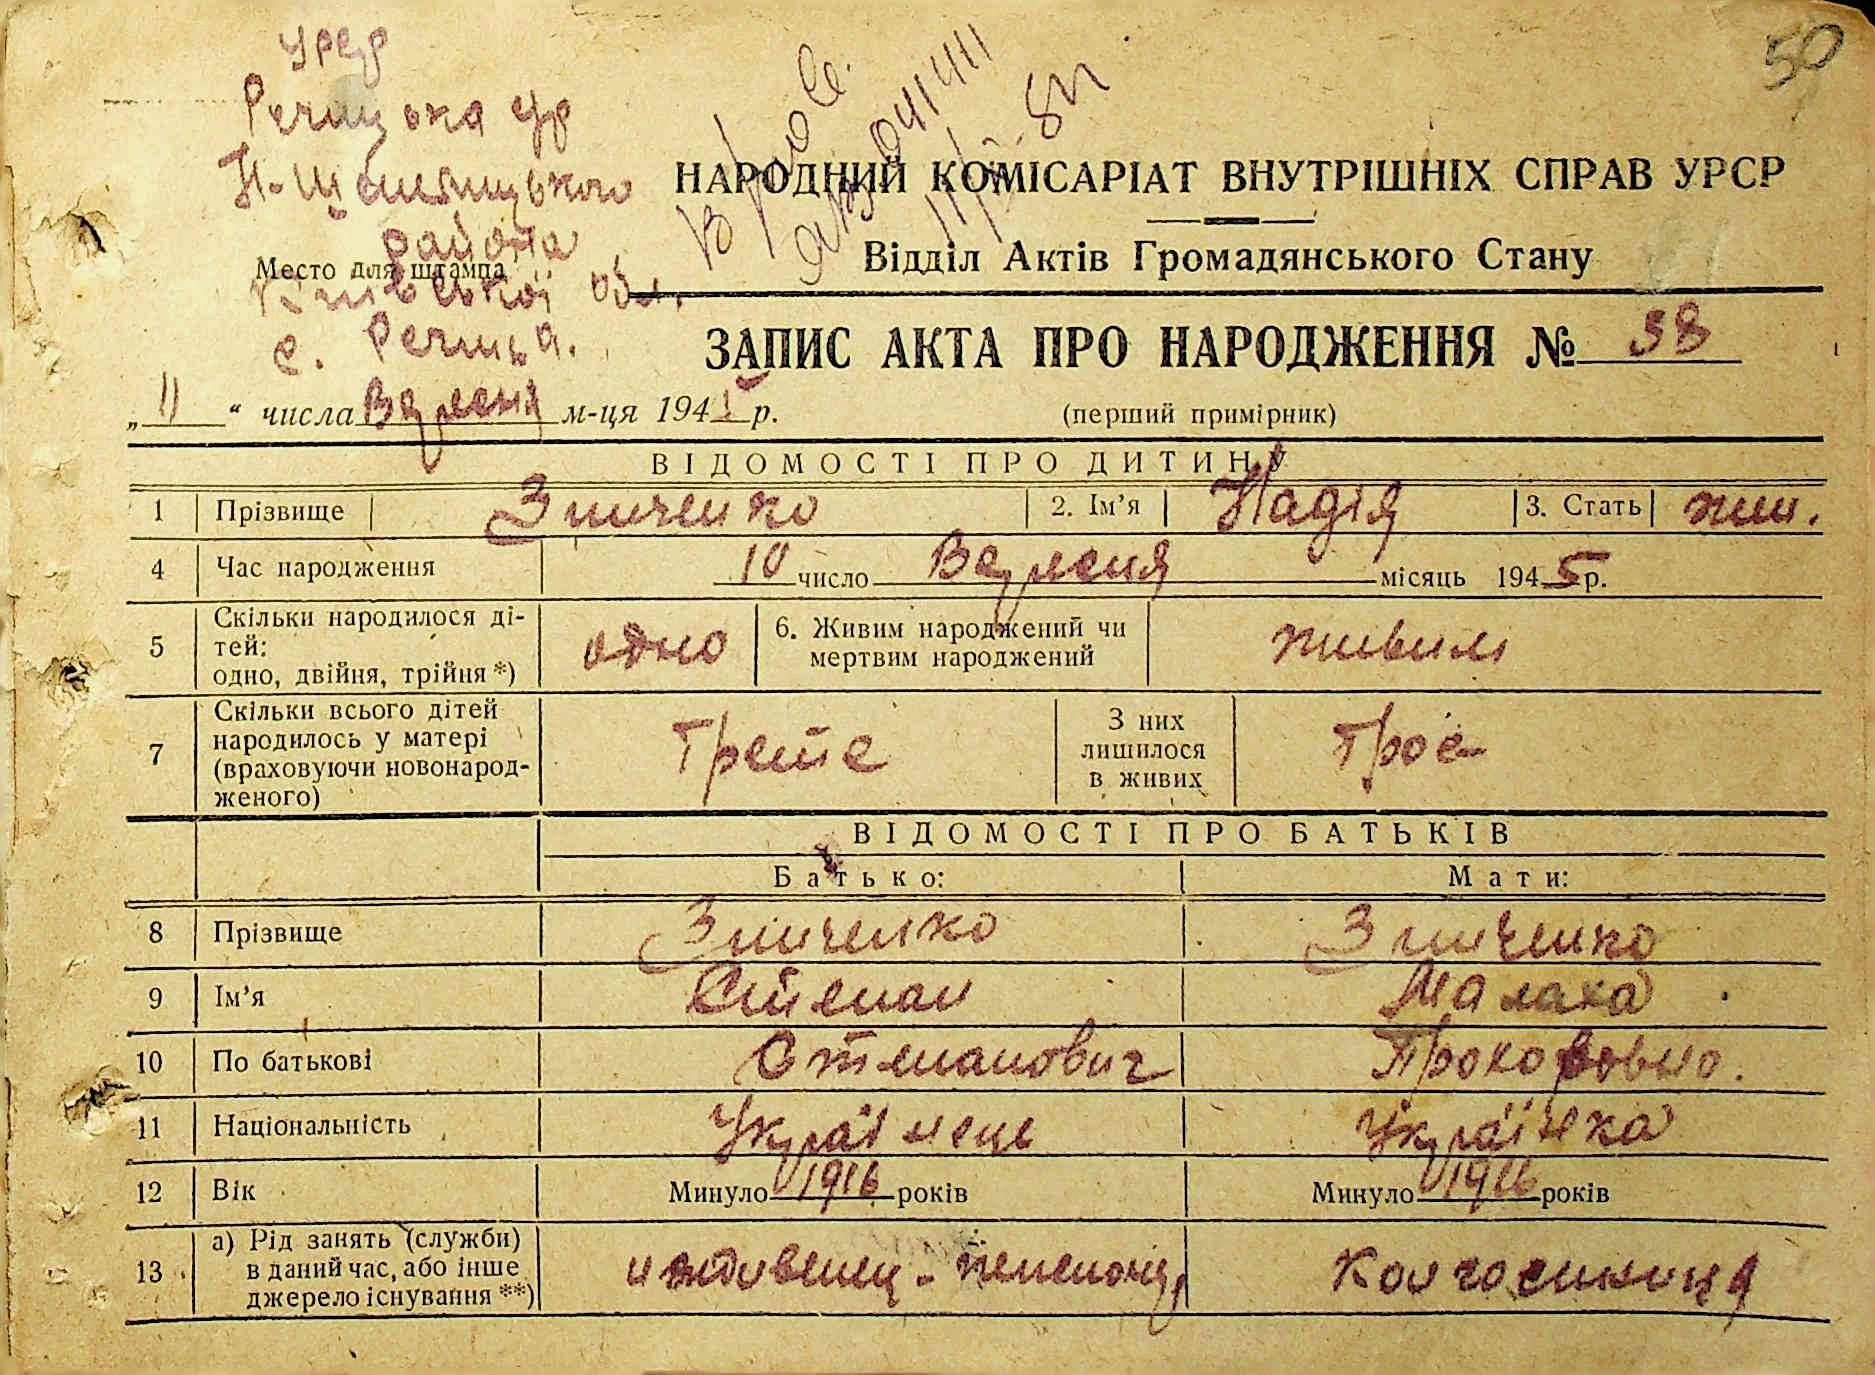 50
УРСР
Речицька ср
Н-Шепелицького
района
Место для штампа
Київської обл.
с. Речица.
НАРОДНИЙ КОМІСАРІАТ ВНУТРІШНІХ СПРАВ УРСР
Відділ Актів Громадянського Стану
ЗАПИС АКТА ПРО НАРОДЖЕННЯ № 38
„11“ числа Вересня м-ця 1945 р.
(перший примірник)
ВІДОМОСТІ ПРО ДИТИНУ
1 Прізвище Зинченко 2. Ім’я Надія 3. Стать жин.
4 Час народження 10 число Вересня місяць 1945 р.
5 Скільки народилося ді-
тей:
одно, двійня, трійня *) одно 6. Живим народжений чи
мертвим народжений живим
7 Скільки всього дітей
народилось у матері
(враховуючи новонарод-
женого) Трете З них
лишилося
в живих Троє
ВІДОМОСТІ ПРО БАТЬКІВ
Батько: Мати:
8 Прізвище Зинченко Зинченко
9 Ім’я Степан Малаха
10 По батькові Степанович Прокоповно.
11 Національність Українець Українка
12 Вік Минуло 1916 років Минуло 1916 років
13 а) Рід занять (служби)
в даний час, або інше
джерело існування **) иждивенец - пенсионер Колгоспниця